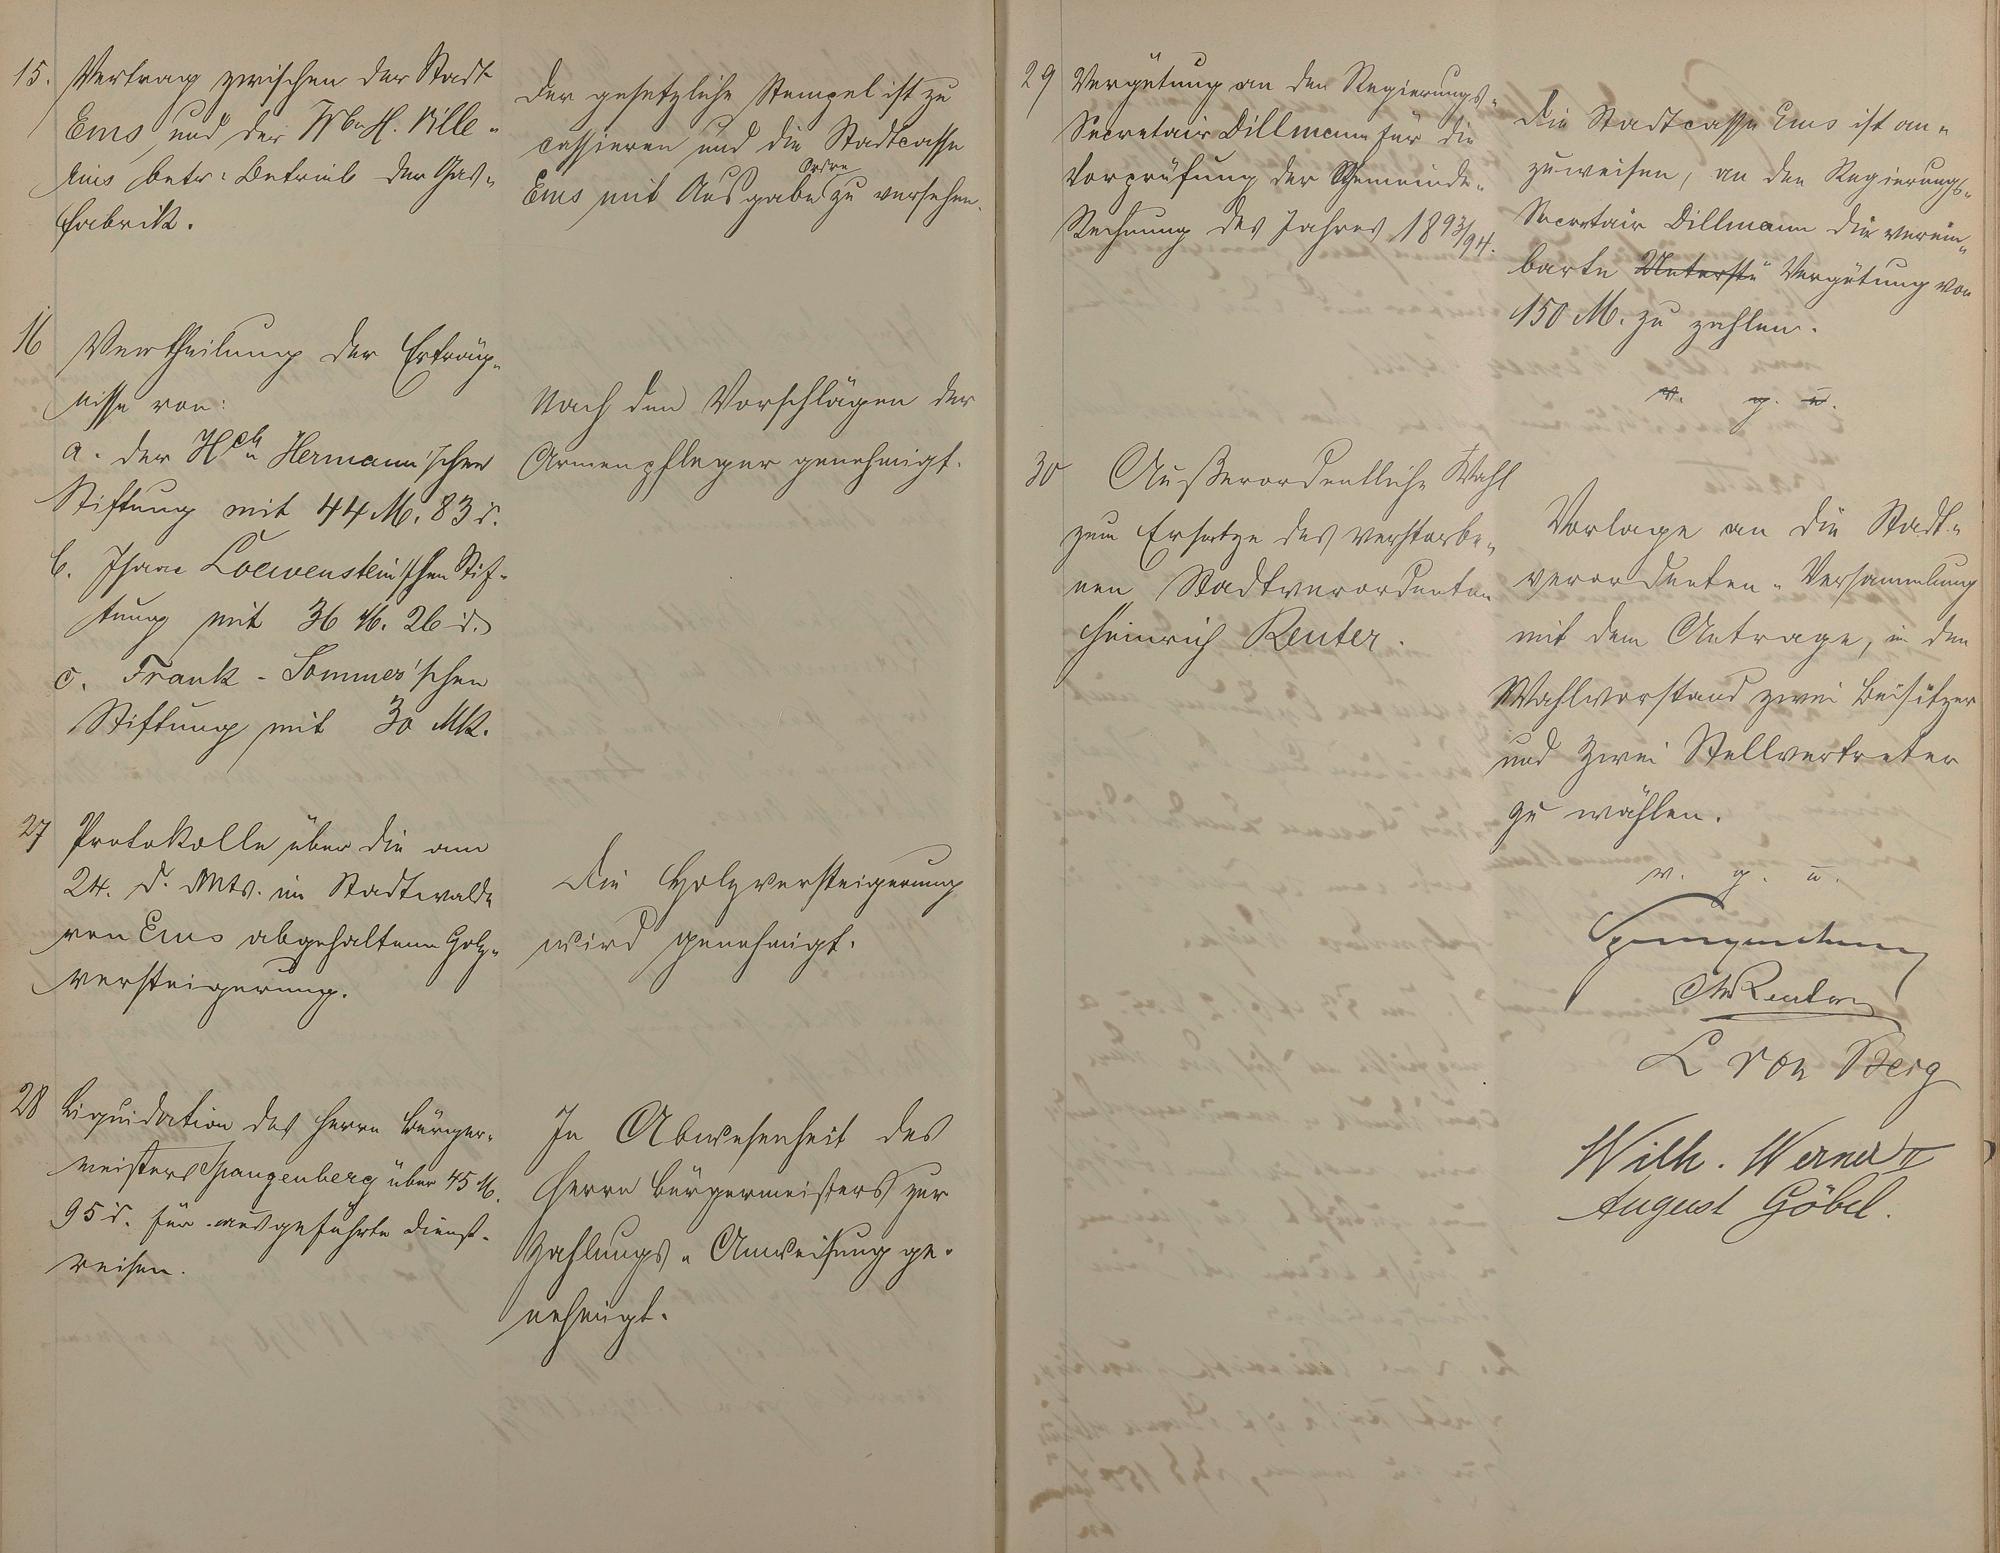 15. Vertrag zwischen der Stadt
Ems und der Wb. H. Ville-
nius betr. Betrieb der Gas-
fabrik.
Der gesetzliche Stempel ist zu
cassieren und die Stadtcasse
Ems mit Ausgabe Ordre zu versehen.
16 Vertheilung der Erträg-
nisse von:
a. der Hch. Hermann'schen
Stiftung mit 44 M. 83 d.
b. Isaac Loewenstein'schen Stif-
tung mit 36 M. 26 d.
c. Frank-Sommer'schen
Stiftung mit 30 Mk.
Nach den Vorschlägen der
Armenpfleger genehmigt.
27 Protokolle über die am
24. d. Mts. im Stadtwalde
von Ems abgehaltene Holz-
versteigerung.
Die Holzversteigerung
wird genehmigt.
28 Liquidation des Herrn Bürger-
meisters Spangenberg über 45 M.
95 d. für ausgeführte Dienst-
reisen.
In Abwesenheit des
Herrn Bürgermeisters zur
Zahlungs-Anweisung ge-
nehmigt.
29 Vergütung an den Regierungs-
Secretair Dillmann für die
Vorprüfung der Gemeinde-
Rechnung des Jahres 1893/94.
Die Stadtcasse Ems ist an-
zuweisen, an den Regierungs-
Secretair Dillmann die verein-
barte Unterste Vergütung von
150 M. zu zahlen.
v. g. u.
30 Außerordentliche Wahl
zum Ersatze des verstorbe-
nen Stadtverordneten
Heinrich Reuter.
Vorlage an die Stadt-
verordneten-Versammlung
mit dem Antrage, in den
Wahlvorstand zwei Beisitzer
und zwei Stellvertreter
zu wählen.
v. g. u.
Spangenberg
Reuter
C von Berg
Wilh. Werner II
August Göbel.